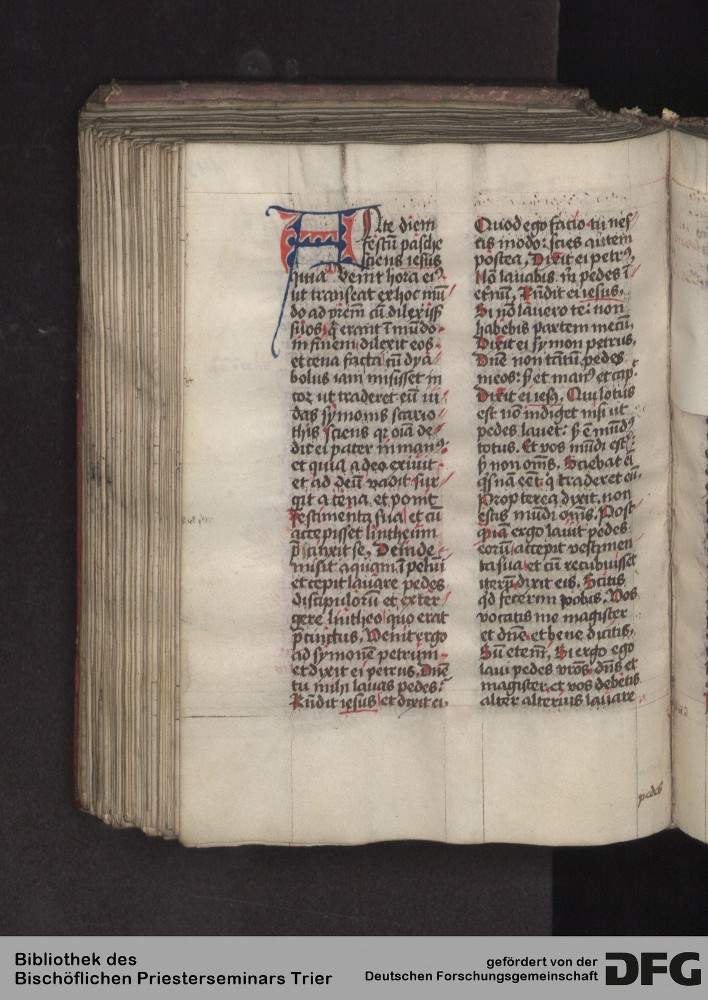 ANte diem
festū pasche
sciens iesus
quia venit hora eiꝰ
ut transeat ex hoc mū
do ad prem cū dilexiss
suos q̄ erant ī mūdo
in finem dilexit eos
et cena facta cū dya
bolus iam misisset in
cor ut traderet eū iu
das symonis scario
this sciens qr oīa de
dit ei pater in manꝰ
et quia a deo exiuit
et ad deū vadit sur
git a cena et ponit
vestimenta sua et cū
accepisset lintheum
p̄cinxit se. Deinde
misit aquam ī pelui
et cepit lauare pedes
discipulorū et exter
gere lintheo quo erat
p̄cinctus. Venit ergo
ad symonē petrum
et dyxit ei petrus. Dn̄e
tu mihi lauas pedes?
Rn̄dit iesus et dixit ei.
Quod ego facio tu nes
cis modo: scies autem
postea. Dixit ei petrꝰ.
Nō lauabis m̄ pedes ī
eternū. Rn̄dit ei iesus.
Si nō lauero te: non
habebis partem mecū.
Dixit ei symon petrus.
Dn̄e non tātū pedes
meos: sꝫ et manꝰ et cap
Dixit ei iesꝰ. Qui lotus
est nō indiget nisi ut
pedes lauet: sꝫ ē mūdꝰ
totus. Et vos mūdi estꝭ
sꝫ non om̄s. Sciebat ei
qsnam eēt q traderet eū.
Propterea dyxit. non
estis mūdi om̄s. Post
quā ergo lauit pedes
eorū accepit vestimen
ta sua et cū recubuisset
iterꝵ dixit eis. Scitis
qd fecerim vobis. Vos
vocatis me magister
et dn̄e et bene dicitis.
Sū etem̄. Si ergo ego
laui pedes vros dn̄s et
magister et vos debetis
alter alterius lauare
pedes
Bibliothek des
Bischöflichen Priesterseminars Trier
gefördert von der
Deutschen Forschungsgemeinschaft
DFG